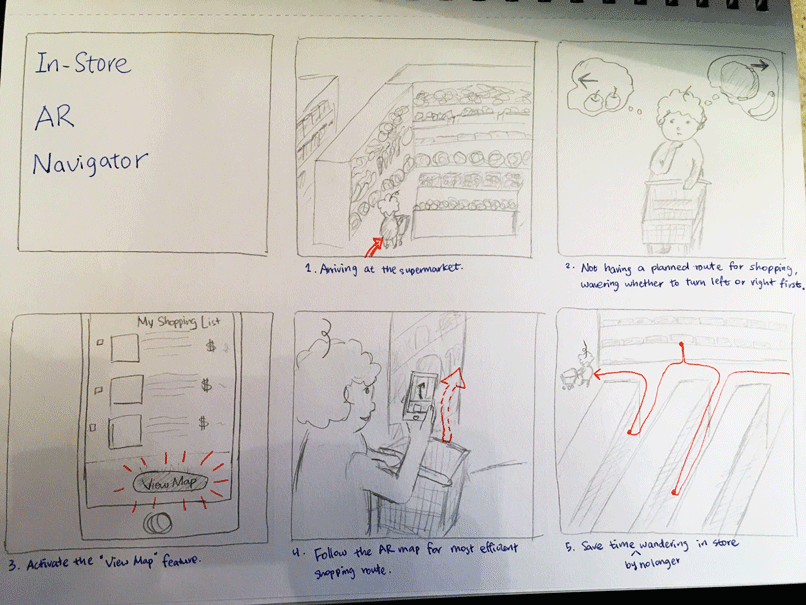 In-Store
AR
Navigator
1. Arriving at the supermarket.
2. Not having a planned route for shopping,
wavering whether to turn left or right first.
My Shopping List
$
$
$
View Map
3. Activate the "View Map" feature.
4. Follow the AR map for most efficient
shopping route.
5. Save time wandering in store
^
by no longer